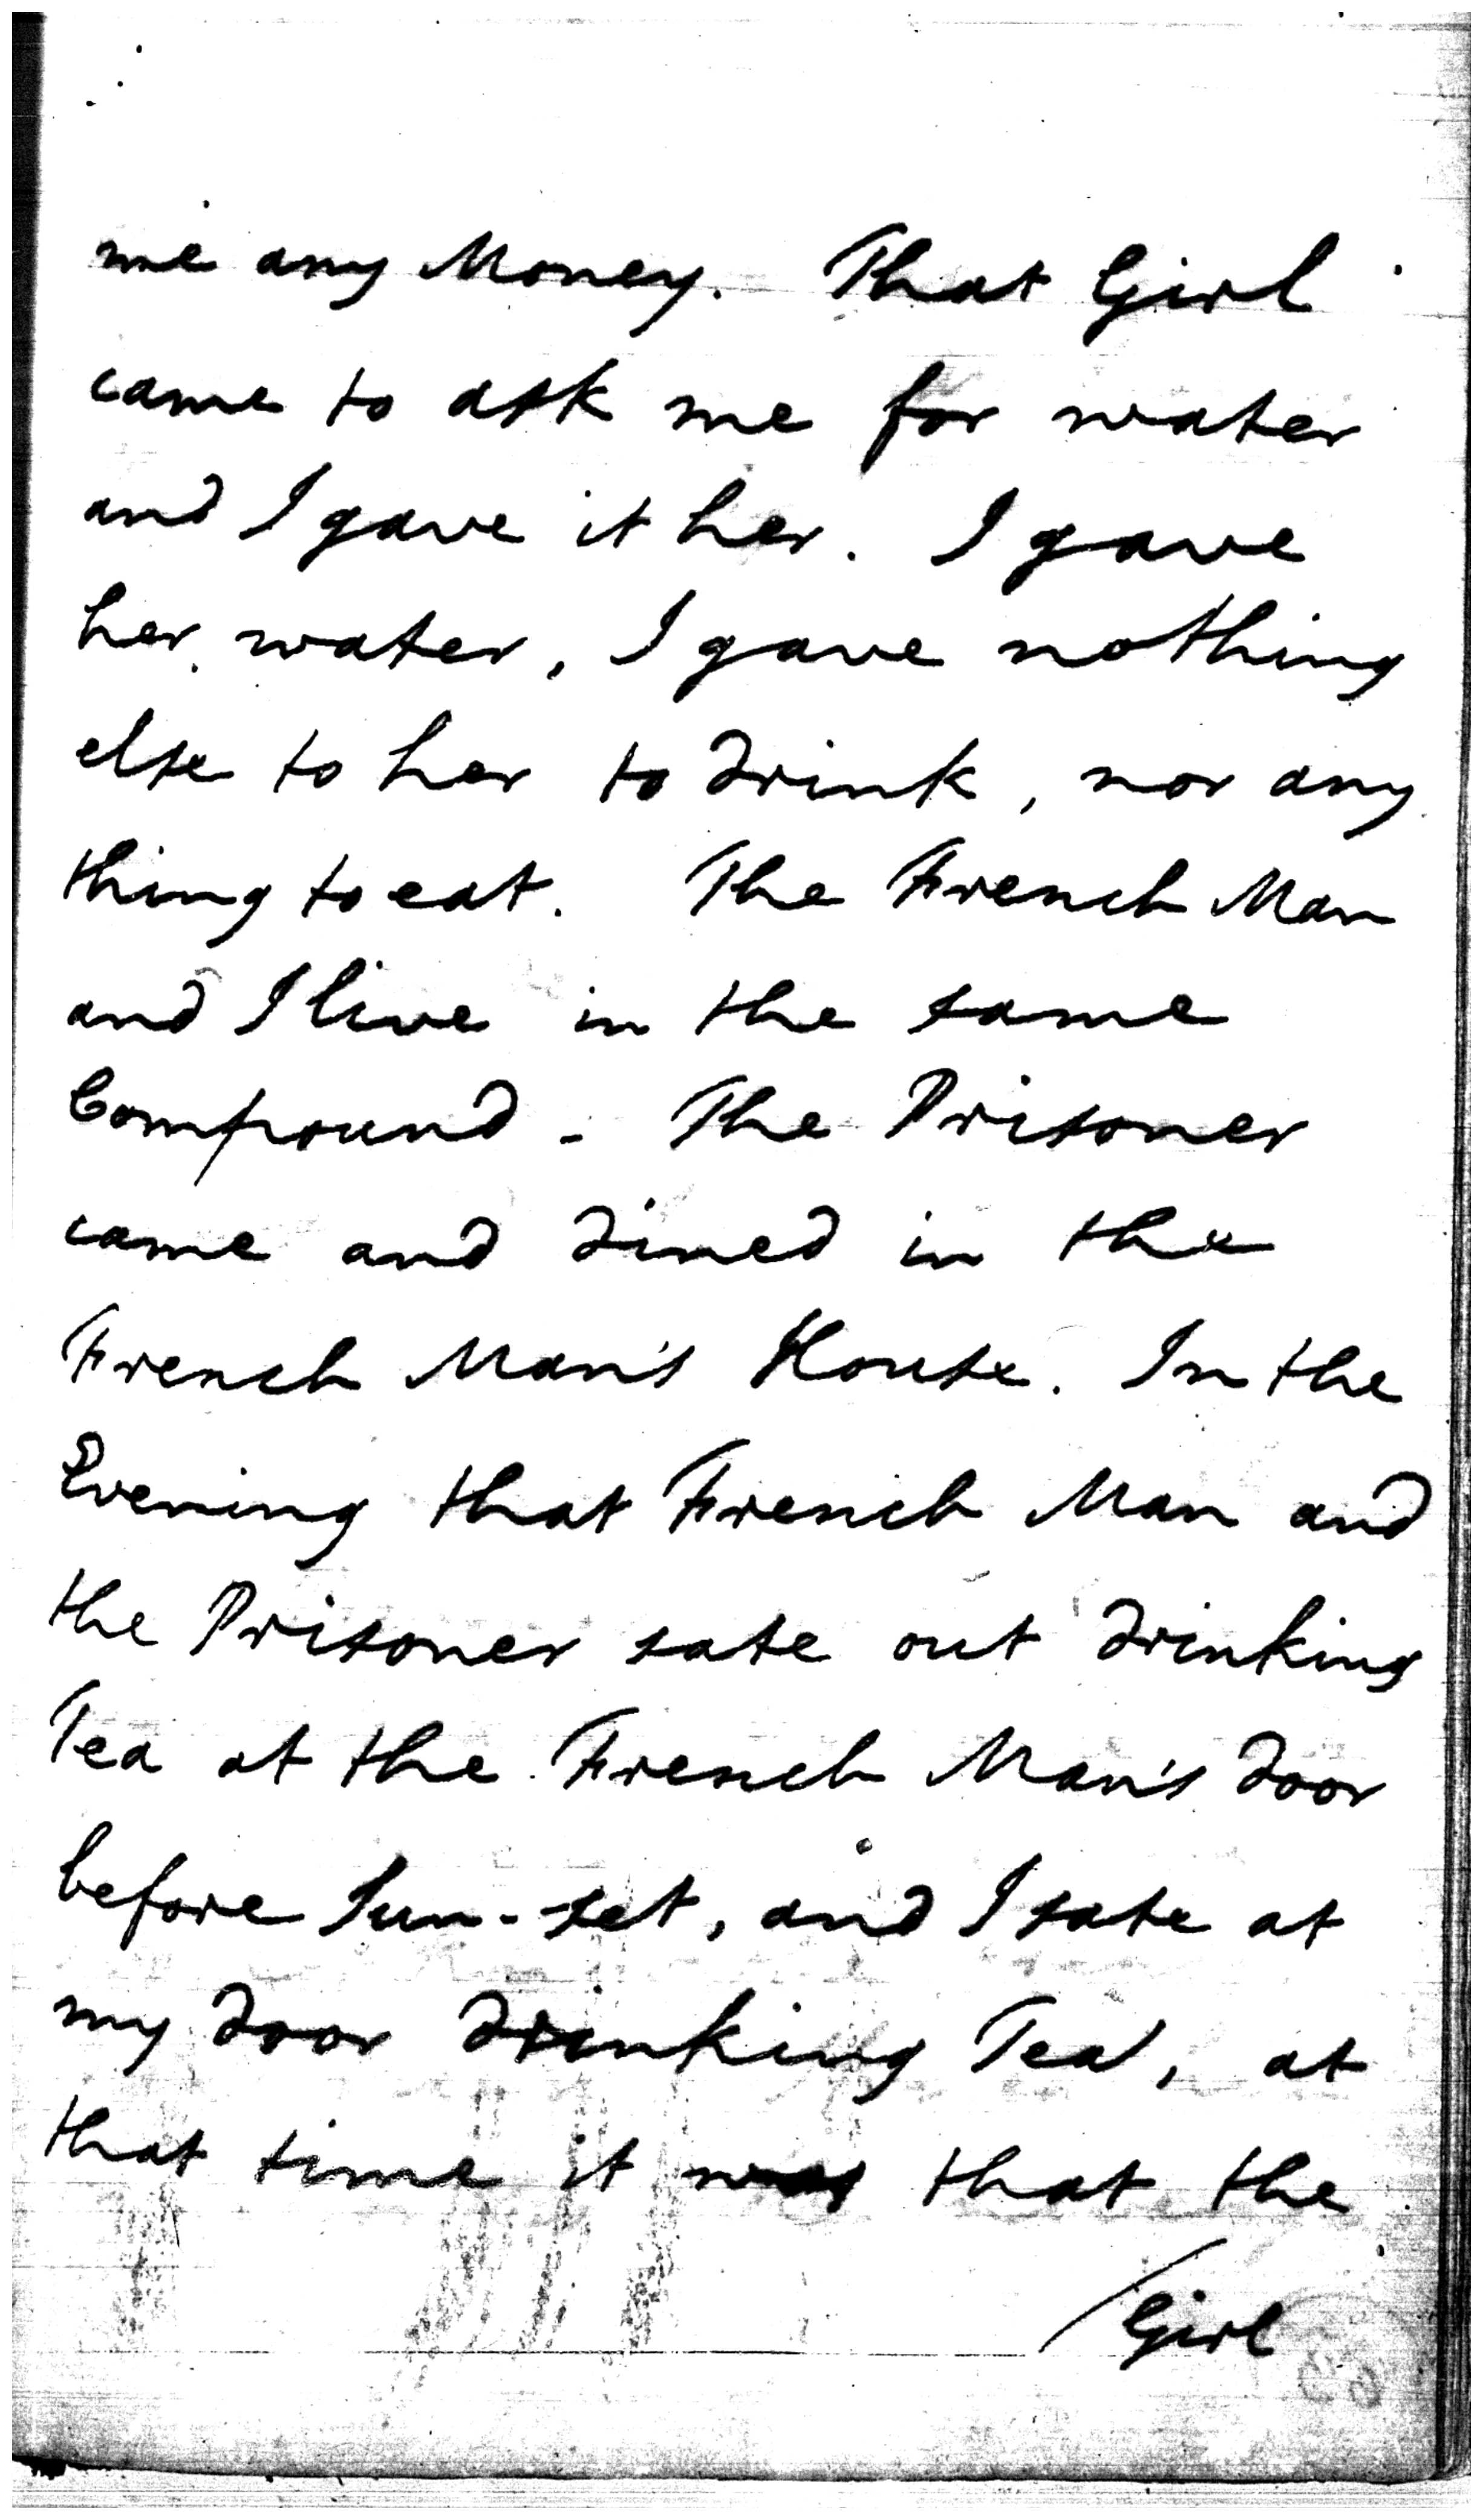 me any Money. That Girl
came to ask me for water
and I gave it her. I gave
her water, I gave nothing
else to her to drink, nor any
thing to eat. The French Man
and I live in the same
Compound - The Prisoner
came and dined in the
French Man's House. In the
Evening that French Man and
the Prisoner sate out drinking
Tea at the French Man's door
before Sun-set, and I sate at
my door drinking Tea, at
that time it was that the
Girl